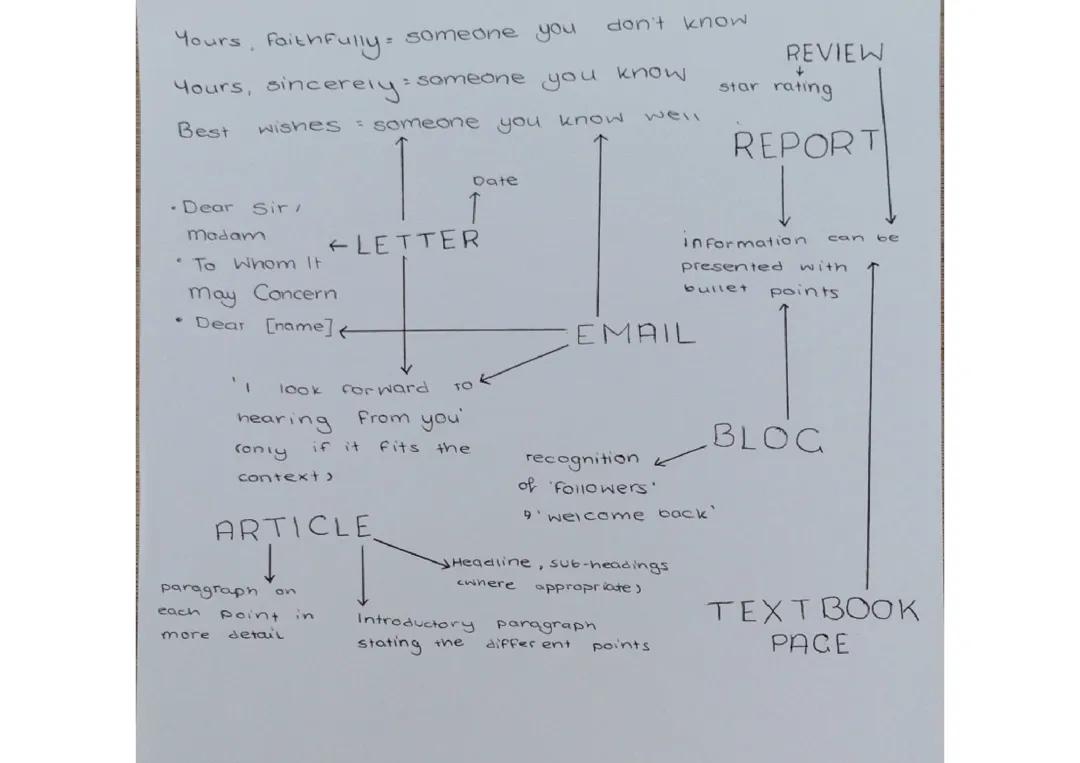 Yours, faithfully = someone you don't know
Yours, sincerely = someone you know
Best wishes = someone you know well
REVIEW
star rating
REPORT
information can be
presented with
bullet points
Date
• Dear Sir/
Madam
• To Whom It
May Concern
• Dear [name]
LETTER
EMAIL
'I look forward to
hearing from you'
(only if it fits the
context)
BLOG
recognition
of 'followers'
'welcome back'
ARTICLE
Headline, sub-headings
(where appropriate)
paragraph on
each point in
more detail
Introductory paragraph
stating the different points
TEXTBOOK
PAGE